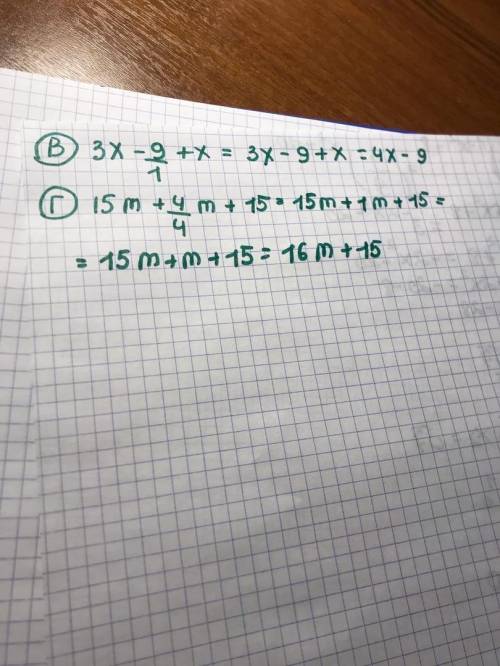 В) 3x - 9/1 + x = 3x - 9 + x = 4x - 9
Г) 15m + 4/4 m + 15 = 15m + 1m + 15 =
= 15m + m + 15 = 16m + 15